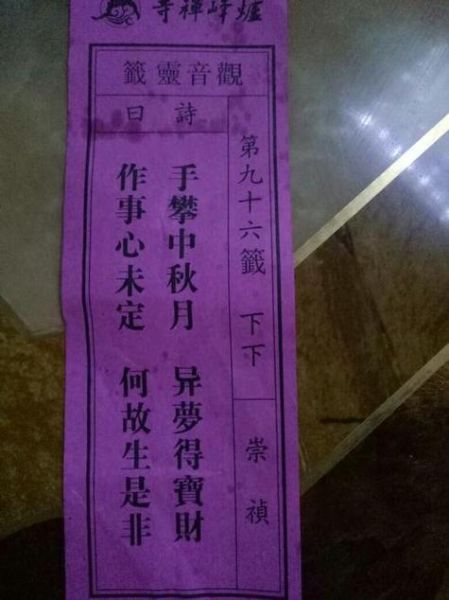 爐峰禪寺
觀音靈籤
第九十六籤 下下 崇禎
詩曰
手攀中秋月 异夢得寶財
作事心未定 何故生是非